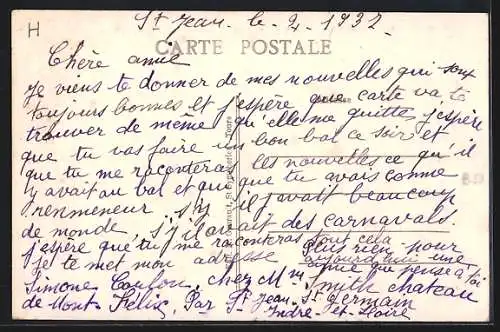 H
St Jean. le. 2. 1932
CARTE POSTALE
Chère amie
Je viens te donner de mes nouvelles qui sont
toujours bonnes et j'espère que carte va te
trouver de même, qu'elle me quitte, j'espère
que tu vas faire un bon bal ce soir et
que tu me raconteras les nouvelles ce qu'il
l'y avait au bal et qui que tu avais comme
renmeneur. s'y il j'avait beaucoup
de monde, s'y il avait des carnavals.
j'espère que tu me raconteras tout cela
je te met mon adresse
Plus rien pour
aujourd'hui une
amie que pense à toi
Simone chez Mme Smith chateau
de Mont Félix, Par St Jean-St Germain
Indre-et-Loire